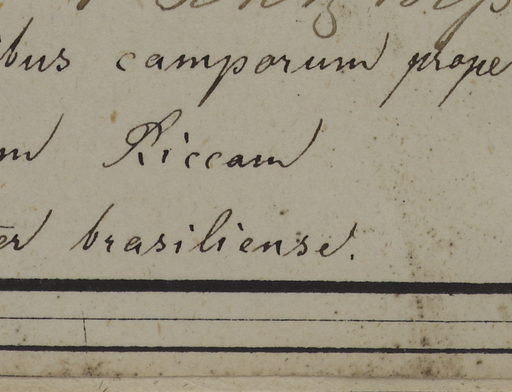 ibus camporum prope
m Riccam
er brasiliense.